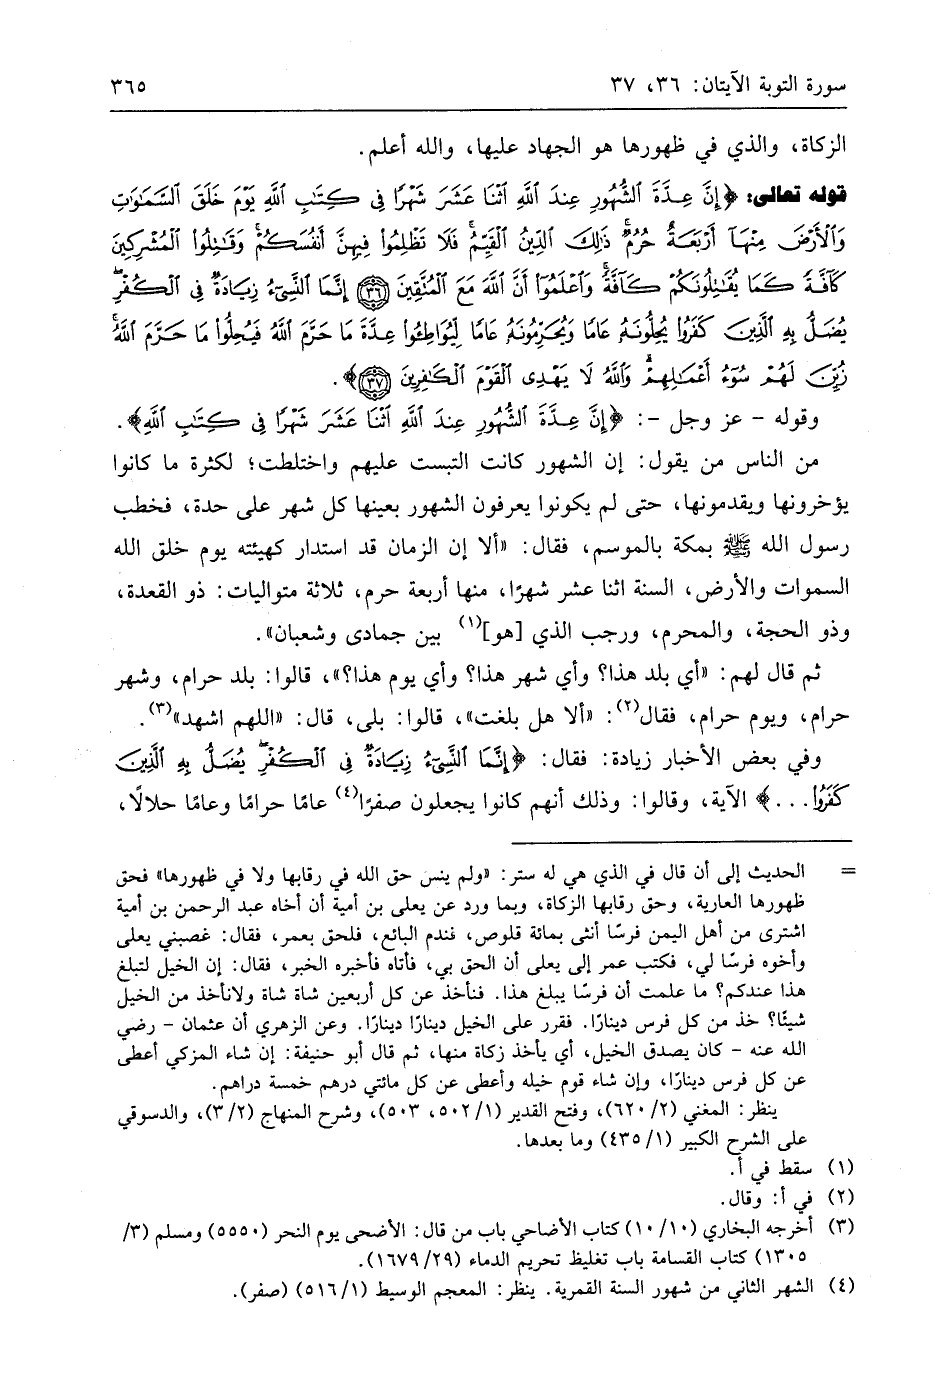 سورة التوبة الآيتان: ٣٦، ٣٧ ٣٦٥
الزكاة، والذي في ظهورها هو الجهاد عليها، والله أعلم.
قوله تعالى: ﴿إِنَّ عِدَّةَ ٱلشُّهُورِ عِندَ ٱللَّهِ ٱثْنَا عَشَرَ شَهْرًا فِى كِتَٰبِ ٱللَّهِ يَوْمَ خَلَقَ ٱلسَّمَٰوَٰتِ
وَٱلْأَرْضَ مِنْهَآ أَرْبَعَةٌ حُرُمٌ ۚ ذَٰلِكَ ٱلدِّينُ ٱلْقَيِّمُ ۚ فَلَا تَظْلِمُوا۟ فِيهِنَّ أَنفُسَكُمْ ۚ وَقَٰتِلُوا۟ ٱلْمُشْرِكِينَ
كَآفَّةً كَمَا يُقَٰتِلُونَكُمْ كَآفَّةً ۚ وَٱعْلَمُوٓا۟ أَنَّ ٱللَّهَ مَعَ ٱلْمُتَّقِينَ ﴿٣٦﴾ إِنَّمَا ٱلنَّسِىٓءُ زِيَادَةٌ فِى ٱلْكُفْرِ ۖ
يُضَلُّ بِهِ ٱلَّذِينَ كَفَرُوا۟ يُحِلُّونَهُۥ عَامًا وَيُحَرِّمُونَهُۥ عَامًا لِّيُوَاطِـُٔوا۟ عِدَّةَ مَا حَرَّمَ ٱللَّهُ فَيُحِلُّوا۟ مَا حَرَّمَ ٱللَّهُ ۚ
زُيِّنَ لَهُمْ سُوٓءُ أَعْمَٰلِهِمْ ۗ وَٱللَّهُ لَا يَهْدِى ٱلْقَوْمَ ٱلْكَٰفِرِينَ ﴿٣٧﴾﴾.
وقوله - عز وجل -: ﴿إِنَّ عِدَّةَ ٱلشُّهُورِ عِندَ ٱللَّهِ ٱثْنَا عَشَرَ شَهْرًا فِى كِتَٰبِ ٱللَّهِ﴾.
من الناس من يقول: إن الشهور كانت التبست عليهم واختلطت؛ لكثرة ما كانوا
يؤخرونها ويقدمونها، حتى لم يكونوا يعرفون الشهور بعينها كل شهر على حدة، فخطب
رسول الله ﷺ بمكة بالموسم، فقال: «ألا إن الزمان قد استدار كهيئته يوم خلق الله
السموات والأرض، السنة اثنا عشر شهرًا، منها أربعة حرم، ثلاثة متواليات: ذو القعدة،
وذو الحجة، والمحرم، ورجب الذي [هو](١) بين جمادى وشعبان».
ثم قال لهم: «أي بلد هذا؟ وأي شهر هذا؟ وأي يوم هذا؟»، قالوا: بلد حرام، وشهر
حرام، ويوم حرام، فقال(٢): «ألا هل بلغت»، قالوا: بلى، قال: «اللهم اشهد»(٣).
وفي بعض الأخبار زيادة: فقال: ﴿إِنَّمَا ٱلنَّسِىٓءُ زِيَادَةٌ فِى ٱلْكُفْرِ ۖ يُضَلُّ بِهِ ٱلَّذِينَ
كَفَرُوا۟...﴾ الآية، وقالوا: وذلك أنهم كانوا يجعلون صفرًا(٤) عامًا حرامًا وعامًا حلالًا،
= الحديث إلى أن قال في الذي هي له ستر: «ولم ينس حق الله في رقابها ولا في ظهورها» فحق
ظهورها العارية، وحق رقابها الزكاة، وبما ورد عن يعلى بن أمية أن أخاه عبد الرحمن بن أمية
اشترى من أهل اليمن فرسًا أنثى بمائة قلوص، فندم البائع، فلحق بعمر، فقال: غصبني يعلى
وأخوه فرسًا لي، فكتب عمر إلى يعلى أن الحق بي، فأتاه فأخبره الخبر، فقال: إن الخيل لتبلغ
هذا عندكم؟ ما علمت أن فرسًا يبلغ هذا. فنأخذ عن كل أربعين شاة شاة ولانأخذ من الخيل
شيئًا؟ خذ من كل فرس دينارًا. فقرر على الخيل دينارًا دينارًا. وعن الزهري أن عثمان - رضي
الله عنه - كان يصدق الخيل، أي يأخذ زكاة منها، ثم قال أبو حنيفة: إن شاء المزكي أعطى
عن كل فرس دينارًا، وإن شاء قوم خيله وأعطى عن كل مائتي درهم خمسة دراهم.
ينظر: المغني (٢/٦٢٠)، وفتح القدير (١/٥٠٢، ٥٠٣)، وشرح المنهاج (٢/٣)، والدسوقي
على الشرح الكبير (١/٤٣٥) وما بعدها.
(١) سقط في أ.
(٢) في أ: وقال.
(٣) أخرجه البخاري (١٠/١٠) كتاب الأضاحي باب من قال: الأضحى يوم النحر (٥٥٥٠) ومسلم (٣/
١٣٠٥) كتاب القسامة باب تغليظ تحريم الدماء (٢٩/١٦٧٩).
(٤) الشهر الثاني من شهور السنة القمرية. ينظر: المعجم الوسيط (١/٥١٦) (صفر).